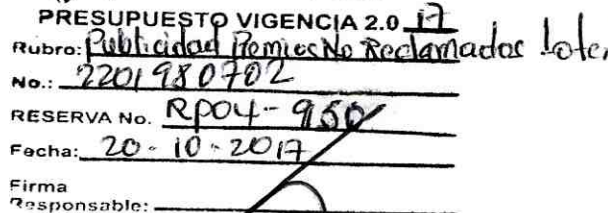 PRESUPUESTO VIGENCIA 2.0 17
Rubro: Publicidad Premios No Reclamados Lote
No.: 2201980702
RESERVA No. RP04-950
Fecha: 20-10-2017
Firma
Responsable: